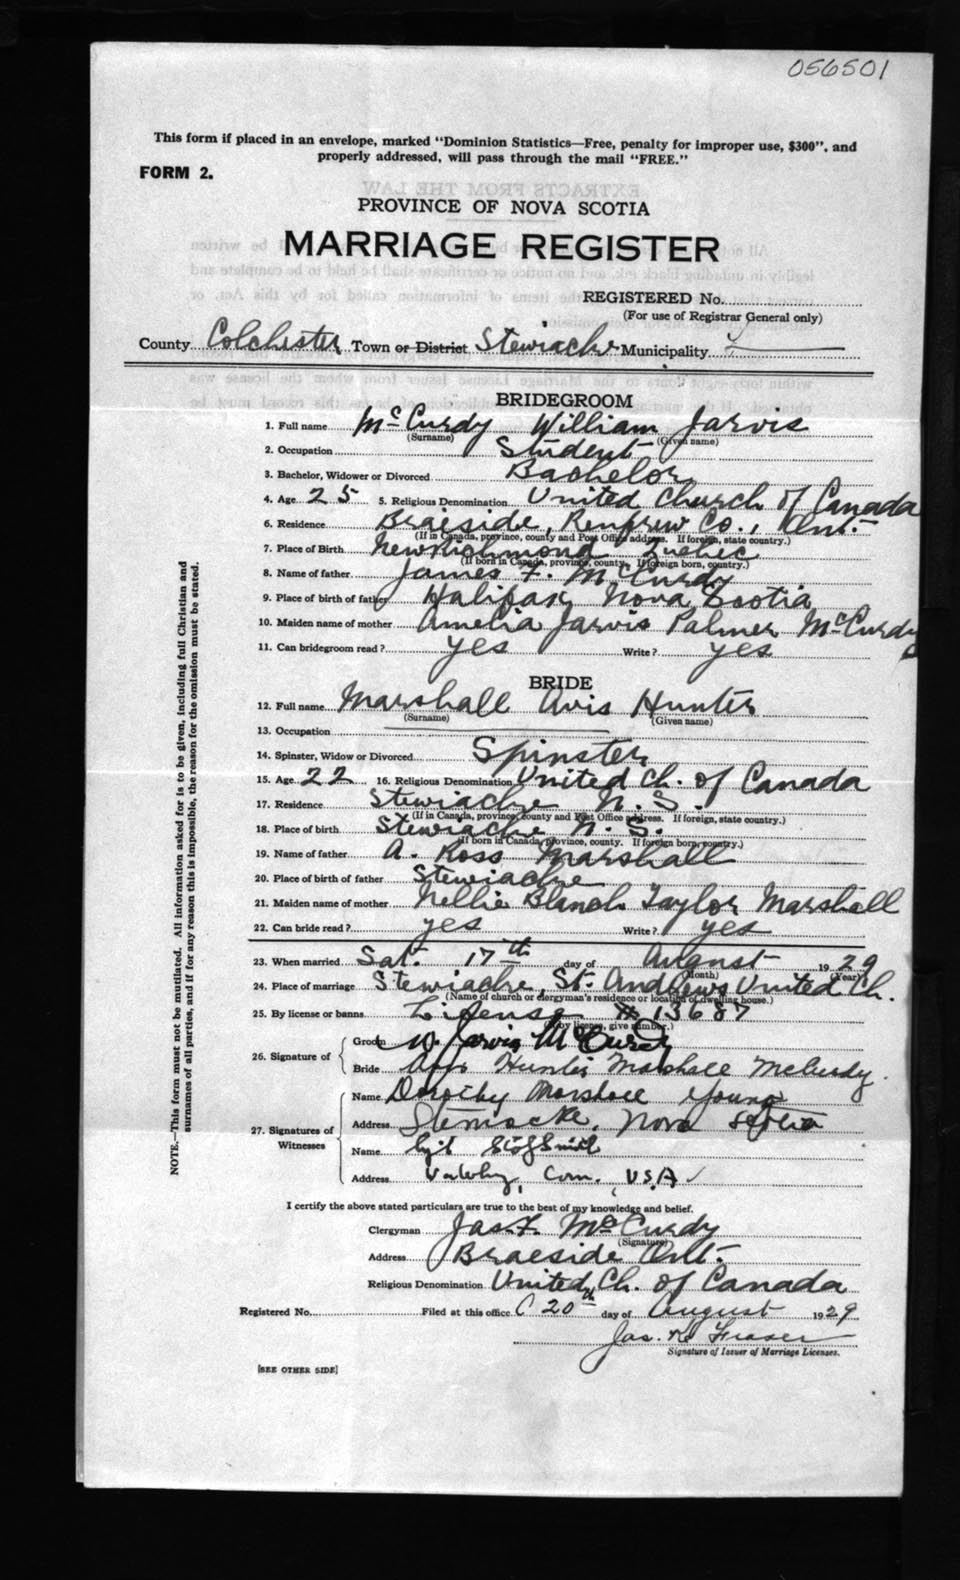 056501
This form if placed in an envelope, marked "Dominion Statistics—Free, penalty for improper use, $300", and
properly addressed, will pass through the mail "FREE."
FORM 2.
PROVINCE OF NOVA SCOTIA
MARRIAGE REGISTER
REGISTERED No.
(For use of Registrar General only)
County Colchester Town or District Stewiacke Municipality
BRIDEGROOM
1. Full name McCurdy William Jarvis
(Surname) (Given name)
2. Occupation Student
3. Bachelor, Widower or Divorced Bachelor
4. Age 25 5. Religious Denomination United Church of Canada
6. Residence Braeside, Renfrew Co., Ont.
(If in Canada, province, county and Post Office address. If foreign, state country.)
7. Place of Birth New Richmond Quebec
(If born in Canada, province, county. If foreign born, country.)
8. Name of father James F. McCurdy
9. Place of birth of father Halifax, Nova Scotia
10. Maiden name of mother Amelia Jarvis Palmer McCurdy
11. Can bridegroom read? yes Write? yes
BRIDE
12. Full name Marshall Avis Hunter
(Surname) (Given name)
13. Occupation
14. Spinster, Widow or Divorced Spinster
15. Age 22 16. Religious Denomination United Ch. of Canada
17. Residence Stewiacke N. S.
(If in Canada, province, county and Post Office address. If foreign, state country.)
18. Place of birth Stewiacke N. S.
(If born in Canada, province, county. If foreign born, country.)
19. Name of father A. Ross Marshall
20. Place of birth of father Stewiacke
21. Maiden name of mother Nellie Blanch Taylor Marshall
22. Can bride read? yes Write? yes
23. When married Sat. 17th day of August 1929
(Month) (Year)
24. Place of marriage Stewiacke, St. Andrews United Ch.
(Name of church or clergyman's residence or location of dwelling house.)
25. By license or banns License # 13687
(If by license, give number.)
26. Signature of Groom W. Jarvis McCurdy
Bride Avis Hunter Marshall McCurdy.
27. Signatures of Witnesses
Name Dorothy Marshall Young
Address Stewiacke, Nova Scotia
Name
Address Conn., U.S.A
I certify the above stated particulars are true to the best of my knowledge and belief.
Clergyman Jas. F. McCurdy
(Signature)
Address Braeside Ont.
Religious Denomination United Ch. of Canada
Registered No. Filed at this office 20th day of August 1929
Jas. K. Fraser
Signature of Issuer of Marriage Licenses.
[SEE OTHER SIDE]
NOTE.—This form must not be mutilated. All information asked for is to be given, including full Christian and
surnames of all parties, and if for any reason this is impossible, the reason for the omission must be stated.